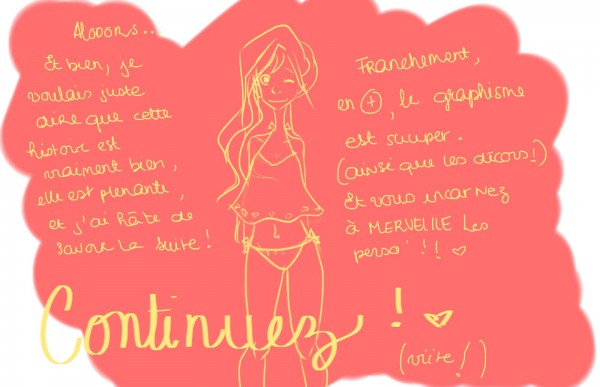 Alooors...
Et bien, je
voulais juste
dire que cette
histoire est
vraiment bien,
elle est prenante,
et j'ai hâte de
savoir la suite !
Franchement,
en +, le graphisme
est suuper.
(ainsi que les décors!)
Et vous incarnez
à MERVEILLE les
perso' !! ♥
Continuez ! ♥
(viiite!)